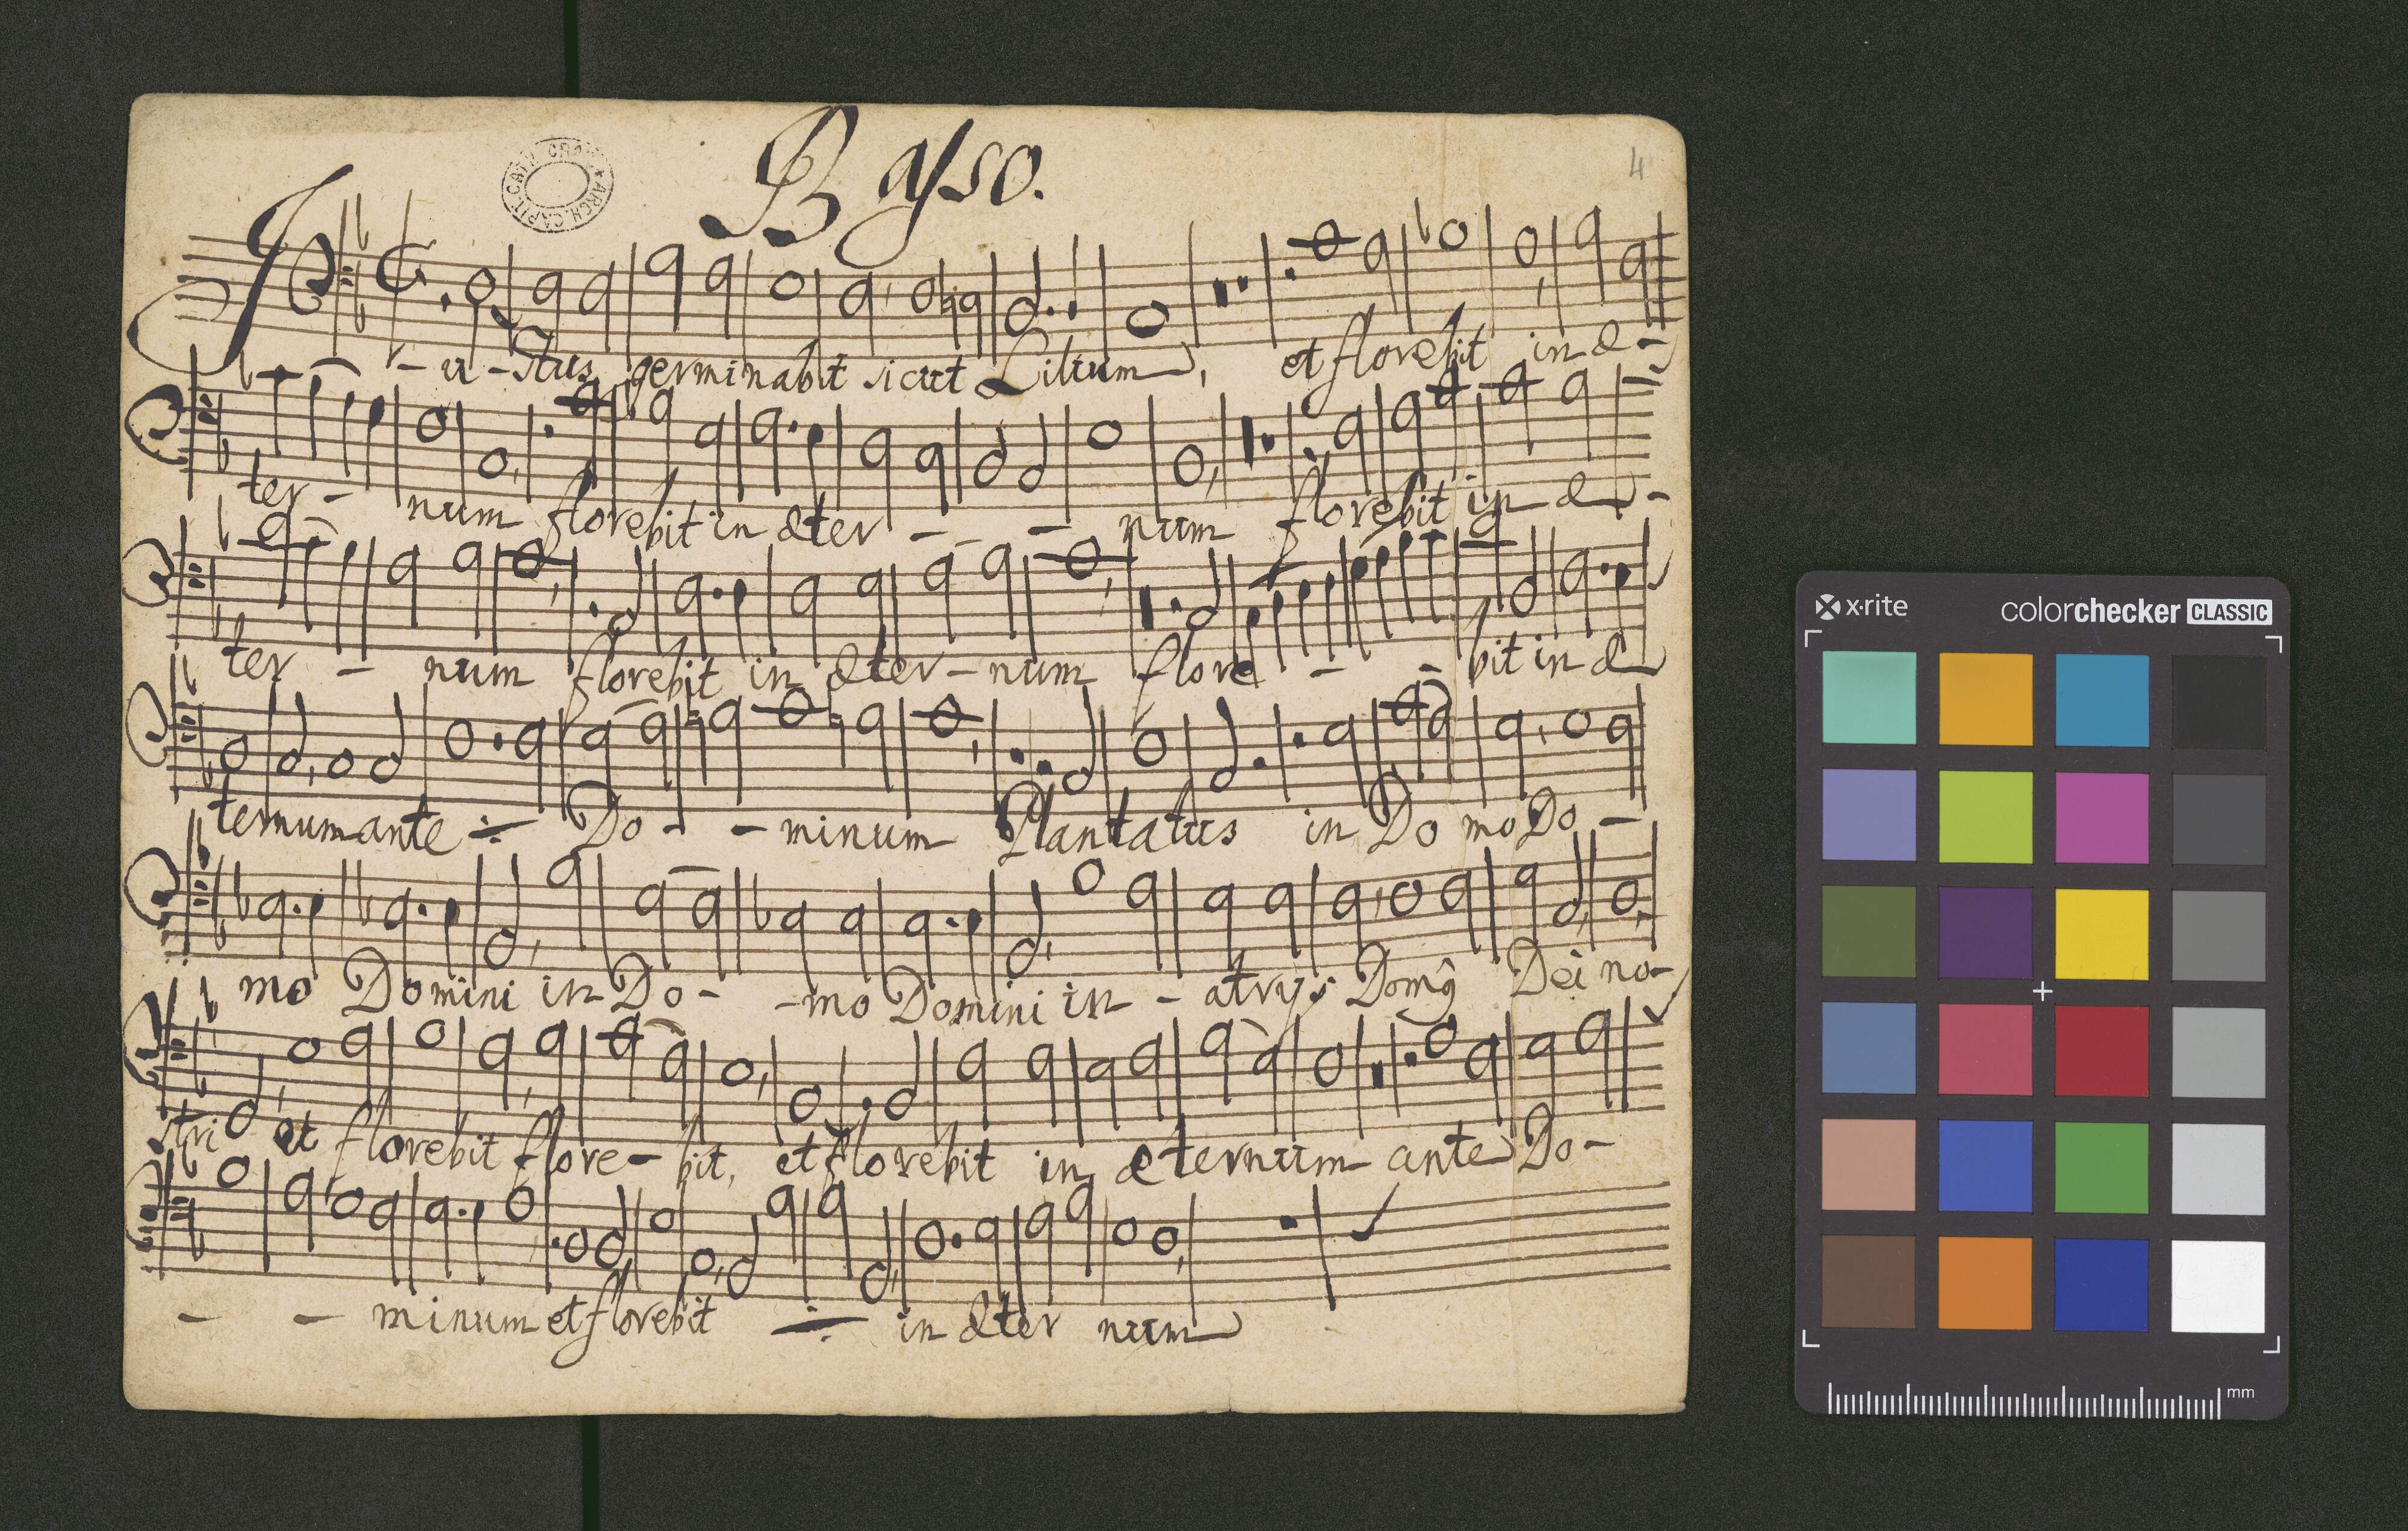 Basso.
4
ARCH. CAPIT. CATH. CRAC.
J-u-stus germinabit sicut Lilium, et florebit in æ-
ter- num florebit in æter - - num florebit in æ-
ter - num florebit in æter-num flore - - bit in æ
ternum ante ÷ Do- - minum Plantatus in Do mo Do -
mo Domini in Do- -mo Domini in - atrys Domg̃ Dei no-
stri et florebit flore- bit, et florebit in æternum ante Do-
- - minum et florebit ÷ in æter num
x·rite colorchecker CLASSIC
mm